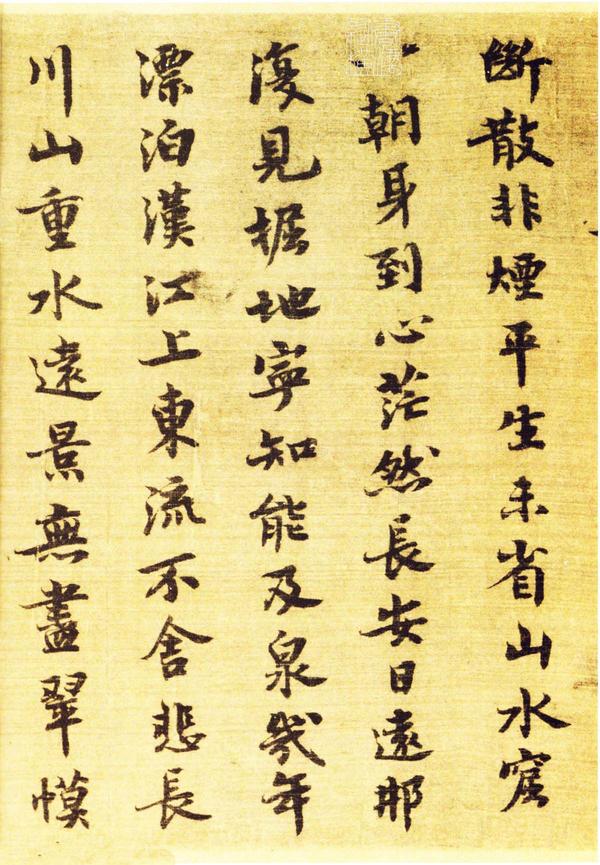 斷散非煙平生未省山水窟
一朝身到心茫然長安日遠那
復見掘地寧知能及泉幾年
漂泊漢江上東流不舍悲長
川山重水遠景無盡翠幙